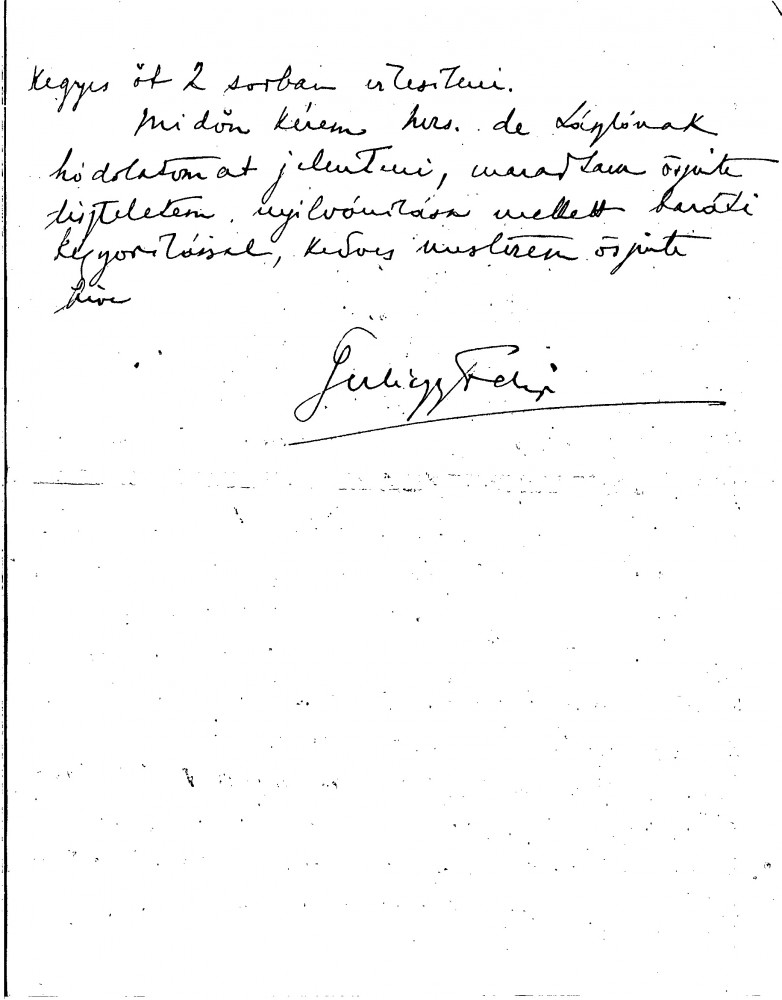 kegyes őt 2 sorban értesíteni.
Midőn kérem Mrs. de Lászlónak
hódolatomat jelenteni, maradtam őszinte
tiszteletem nyilvánítása mellett baráti
kézszorítással, kedves mesterem őszinte
híve